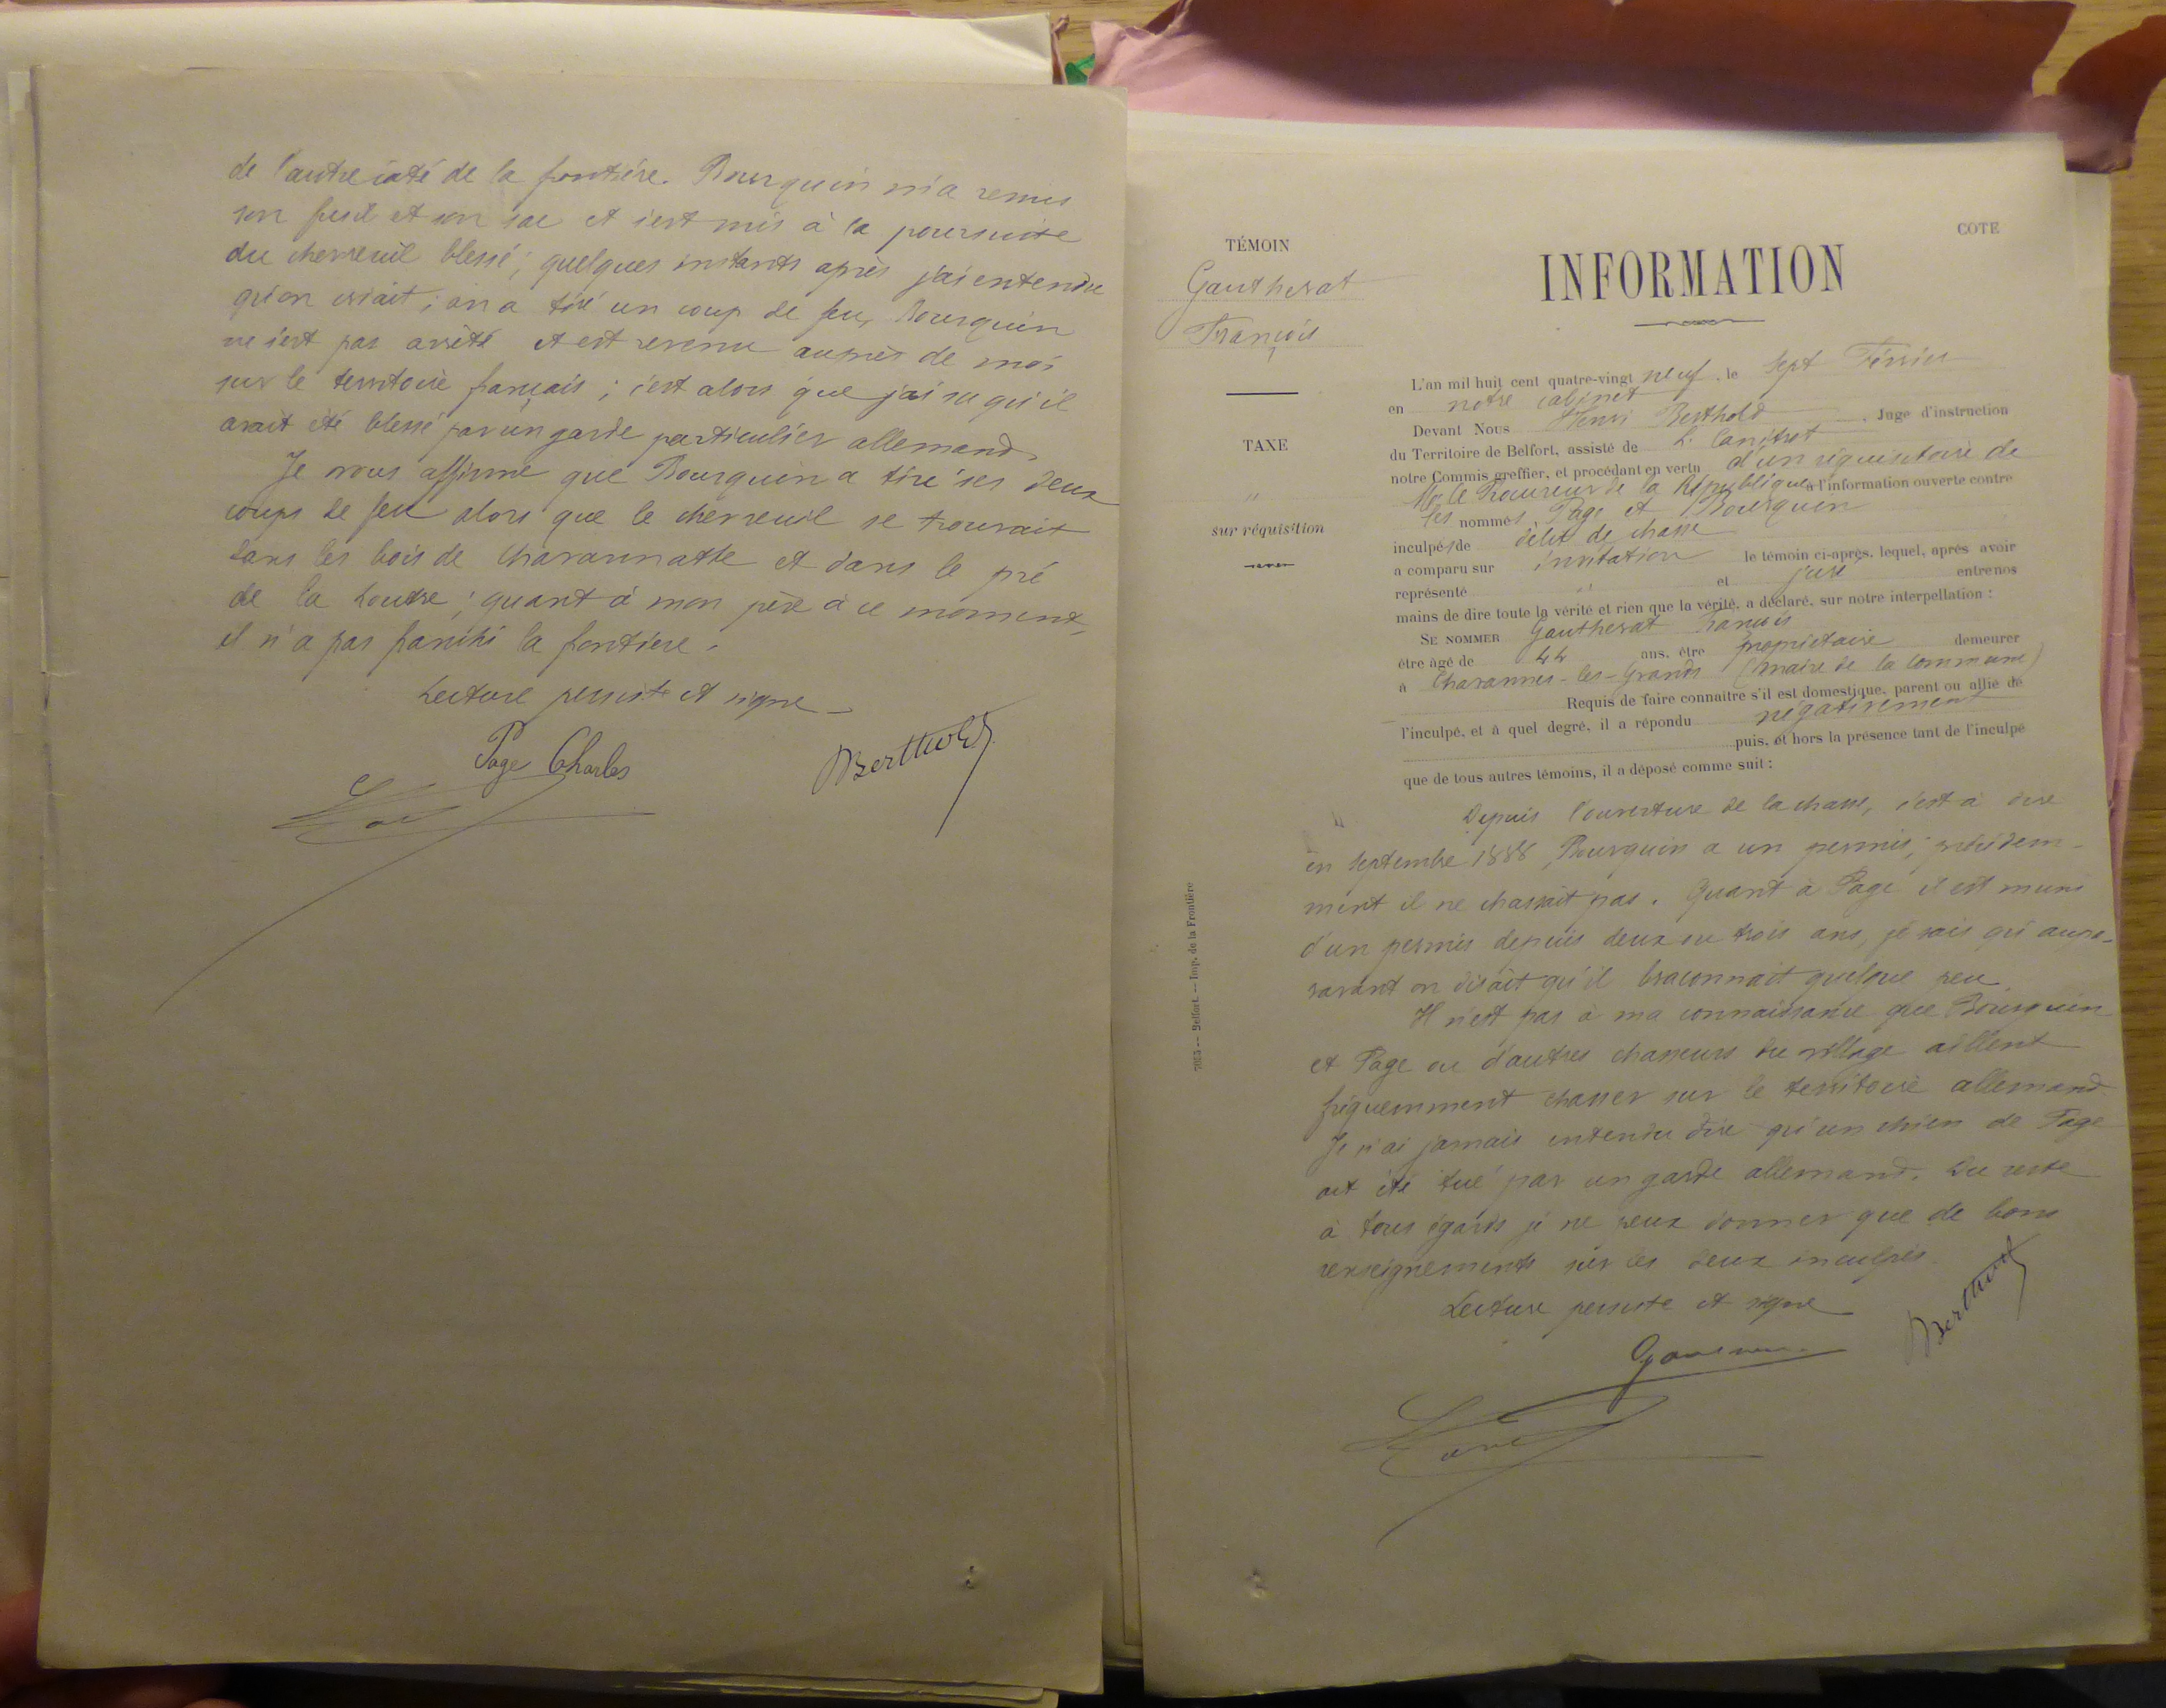 de l'autre côté de la frontière. Bourquin m'a remis
son fusil et son sac et s'est mis à la poursuite
du chevreuil blessé ; quelques instants après j'ai entendu
qu'on criait ; on a tiré un coup de feu, Bourquin
ne s'est pas arrêté et est revenu auprès de moi
sur le territoire français ; c'est alors que j'ai su qu'il
avait été blessé par un garde particulier allemand.
Je vous affirme que Bourquin a tiré ses deux
coups de feu alors que le chevreuil se trouvait
dans les bois de Chavannatte et dans le pré
de la Loutre ; quant à mon père à ce moment,
il n'a pas franchi la frontière.
Lecture persiste et signe
Page Charles
Berthold
COTE
TÉMOIN
Gautherat
François
TAXE
"
sur réquisition
7025 — Belfort. — Imp. de la Frontière
INFORMATION
L'an mil huit cent quatre-vingt neuf, le sept Février
en notre cabinet
Devant Nous Henri Berthold, Juge d'instruction
du Territoire de Belfort, assisté de L. Canitrot
notre Commis greffier, et procédant en vertu d'un réquisitoire de
Mr le Procureur de la République à l'information ouverte contre
les nommés Page et Bourquin
inculpés de délit de chasse
a comparu sur invitation le témoin ci-après, lequel, après avoir
représenté " et juré entre nos
mains de dire toute la vérité et rien que la vérité, a déclaré, sur notre interpellation :
SE NOMMER Gautherat François
être âgé de 44 ans, être propriétaire demeurer
à Chavannes-les-Grands (maire de la commune)
Requis de faire connaître s'il est domestique, parent ou allié de
l'inculpé, et à quel degré, il a répondu négativement
puis, et hors la présence tant de l'inculpé
que de tous autres témoins, il a déposé comme suit :
Depuis l'ouverture de la chasse, c'est à dire
en septembre 1888, Bourquin a un permis ; précédem-
ment il ne chassait pas. Quant à Page il est muni
d'un permis depuis deux ou trois ans, je sais qu'aupa-
ravant on disait qu'il braconnait quelque peu.
Il n'est pas à ma connaissance que Bourquin
et Page ou d'autres chasseurs du village aillent
fréquemment chasser sur le territoire allemand.
Je n'ai jamais entendu dire qu'un chien de Page
ait été tué par un garde allemand. Du reste
à tous égards je ne peux donner que de bons
renseignements sur les deux inculpés.
Lecture persiste et signe
Berthold